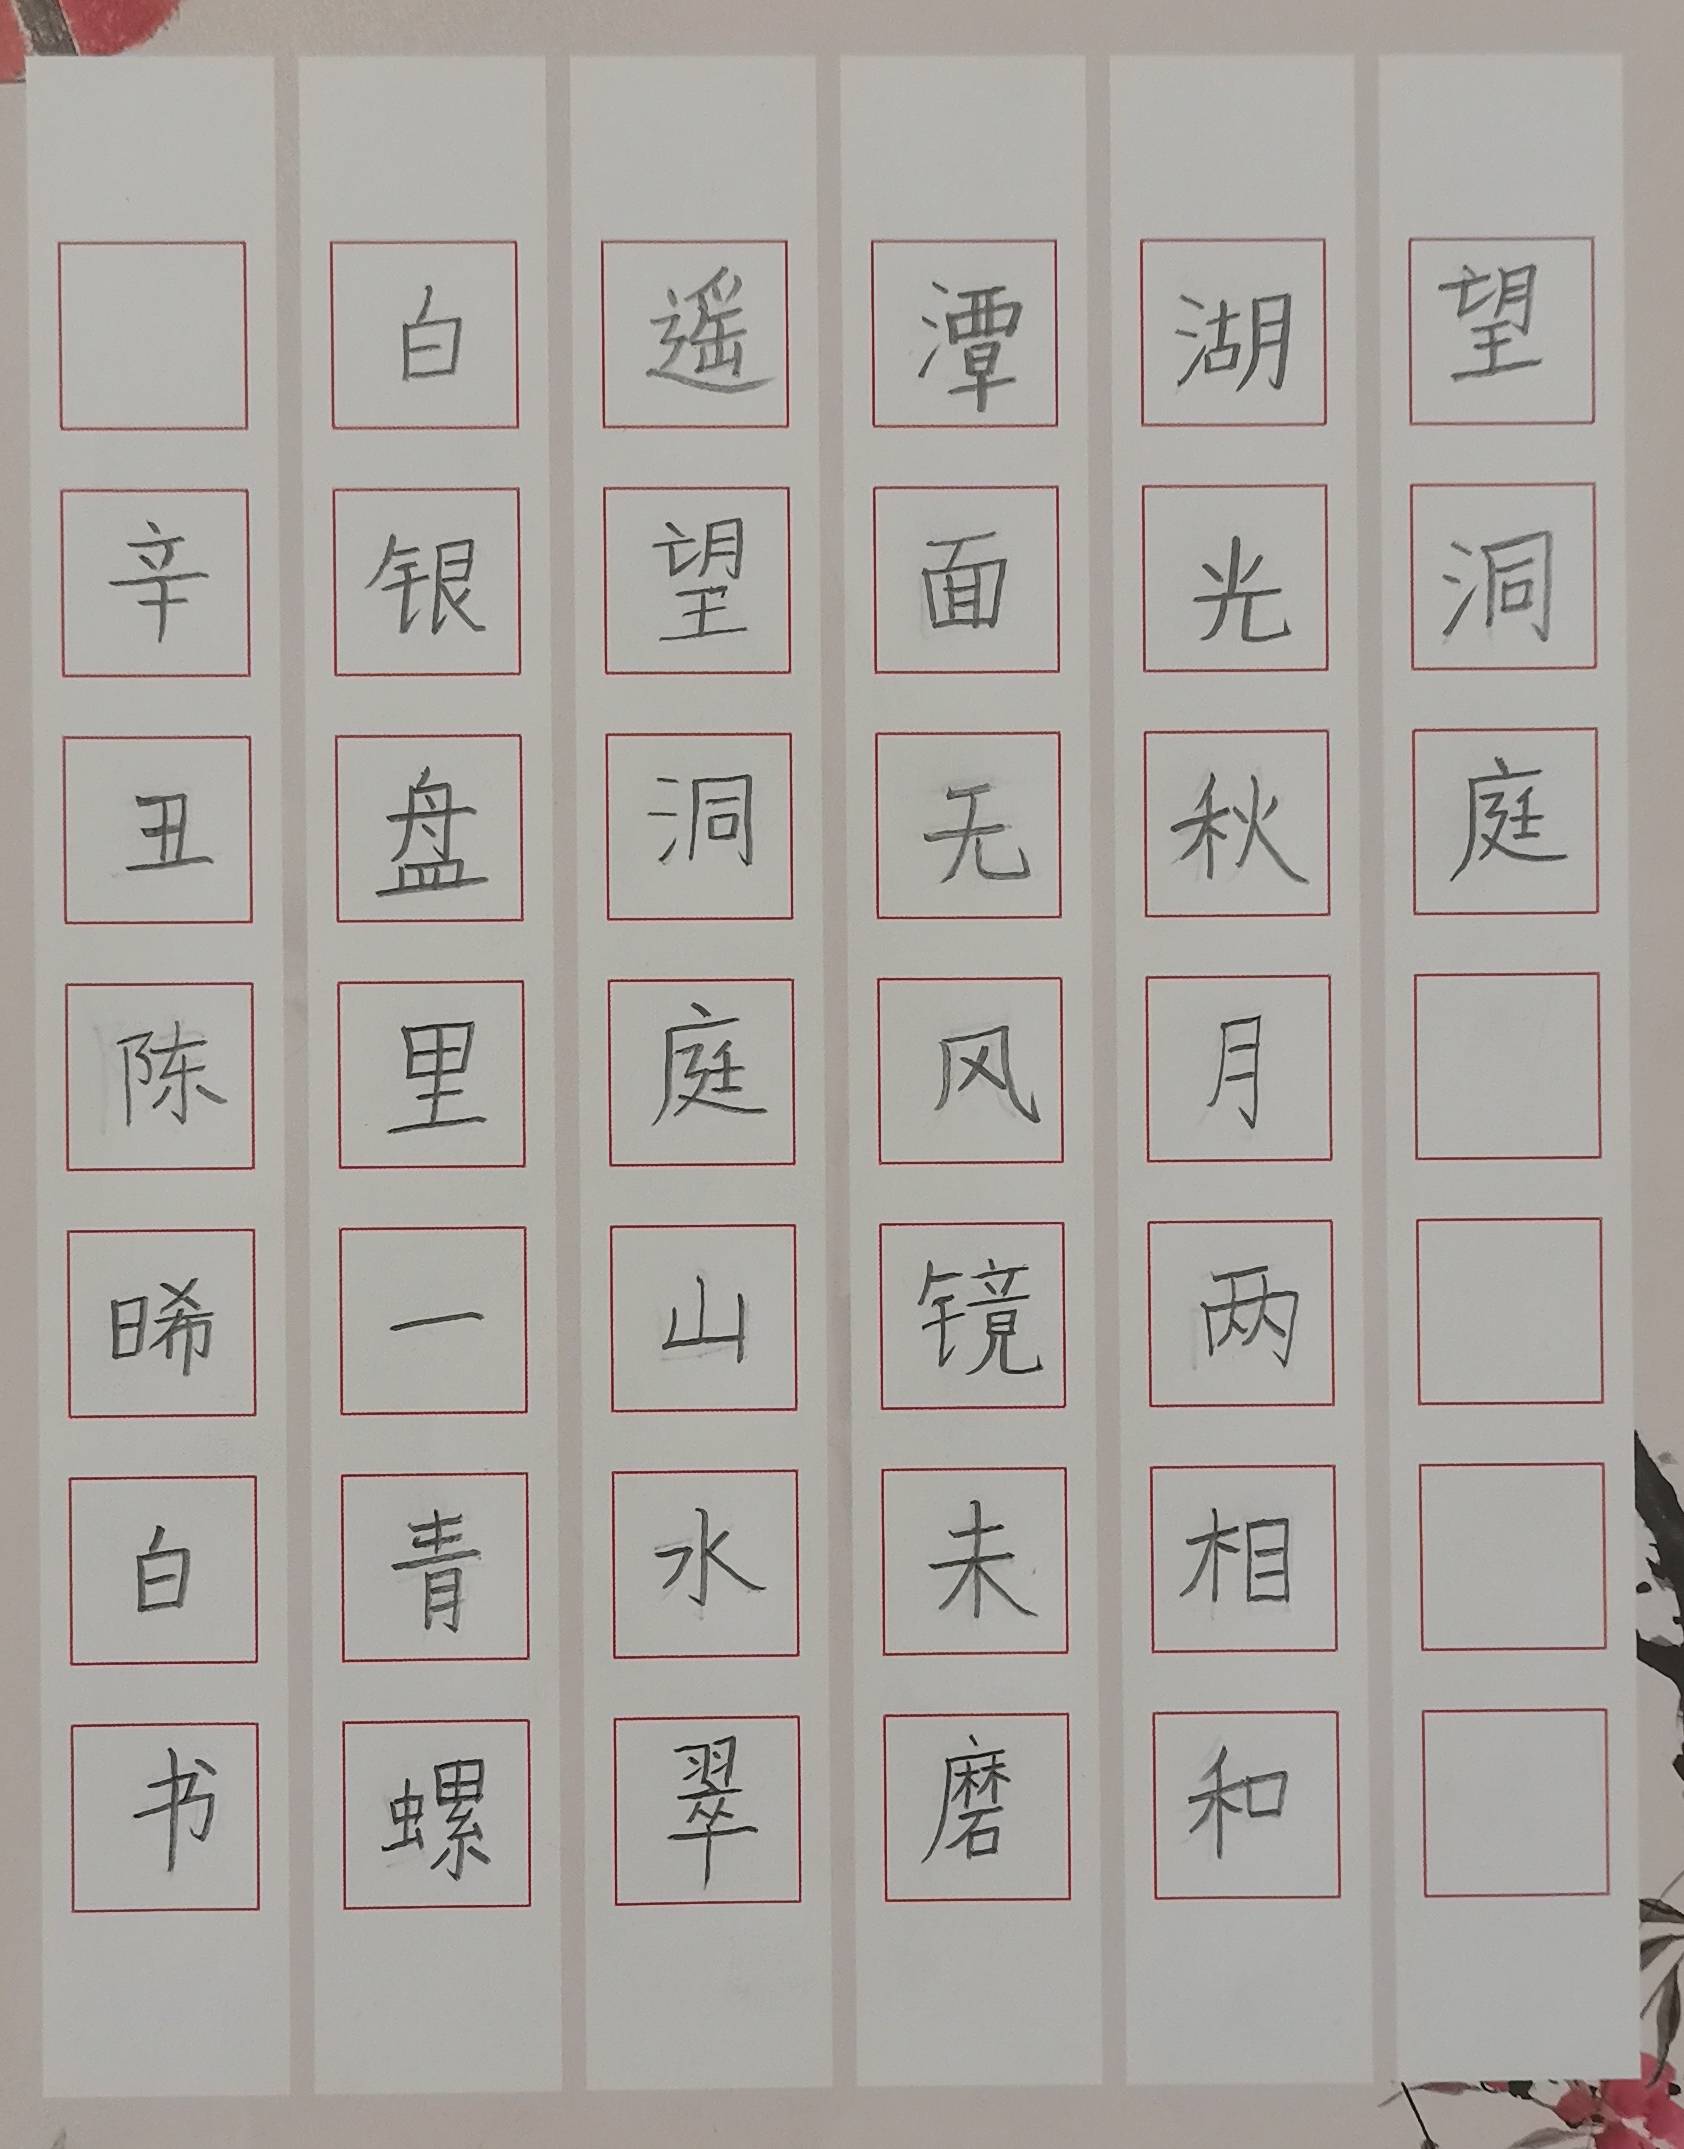 望洞庭
湖光秋月两相和
潭面无风镜未磨
遥望洞庭山水翠
白银盘里一青螺
辛丑陈晞白书